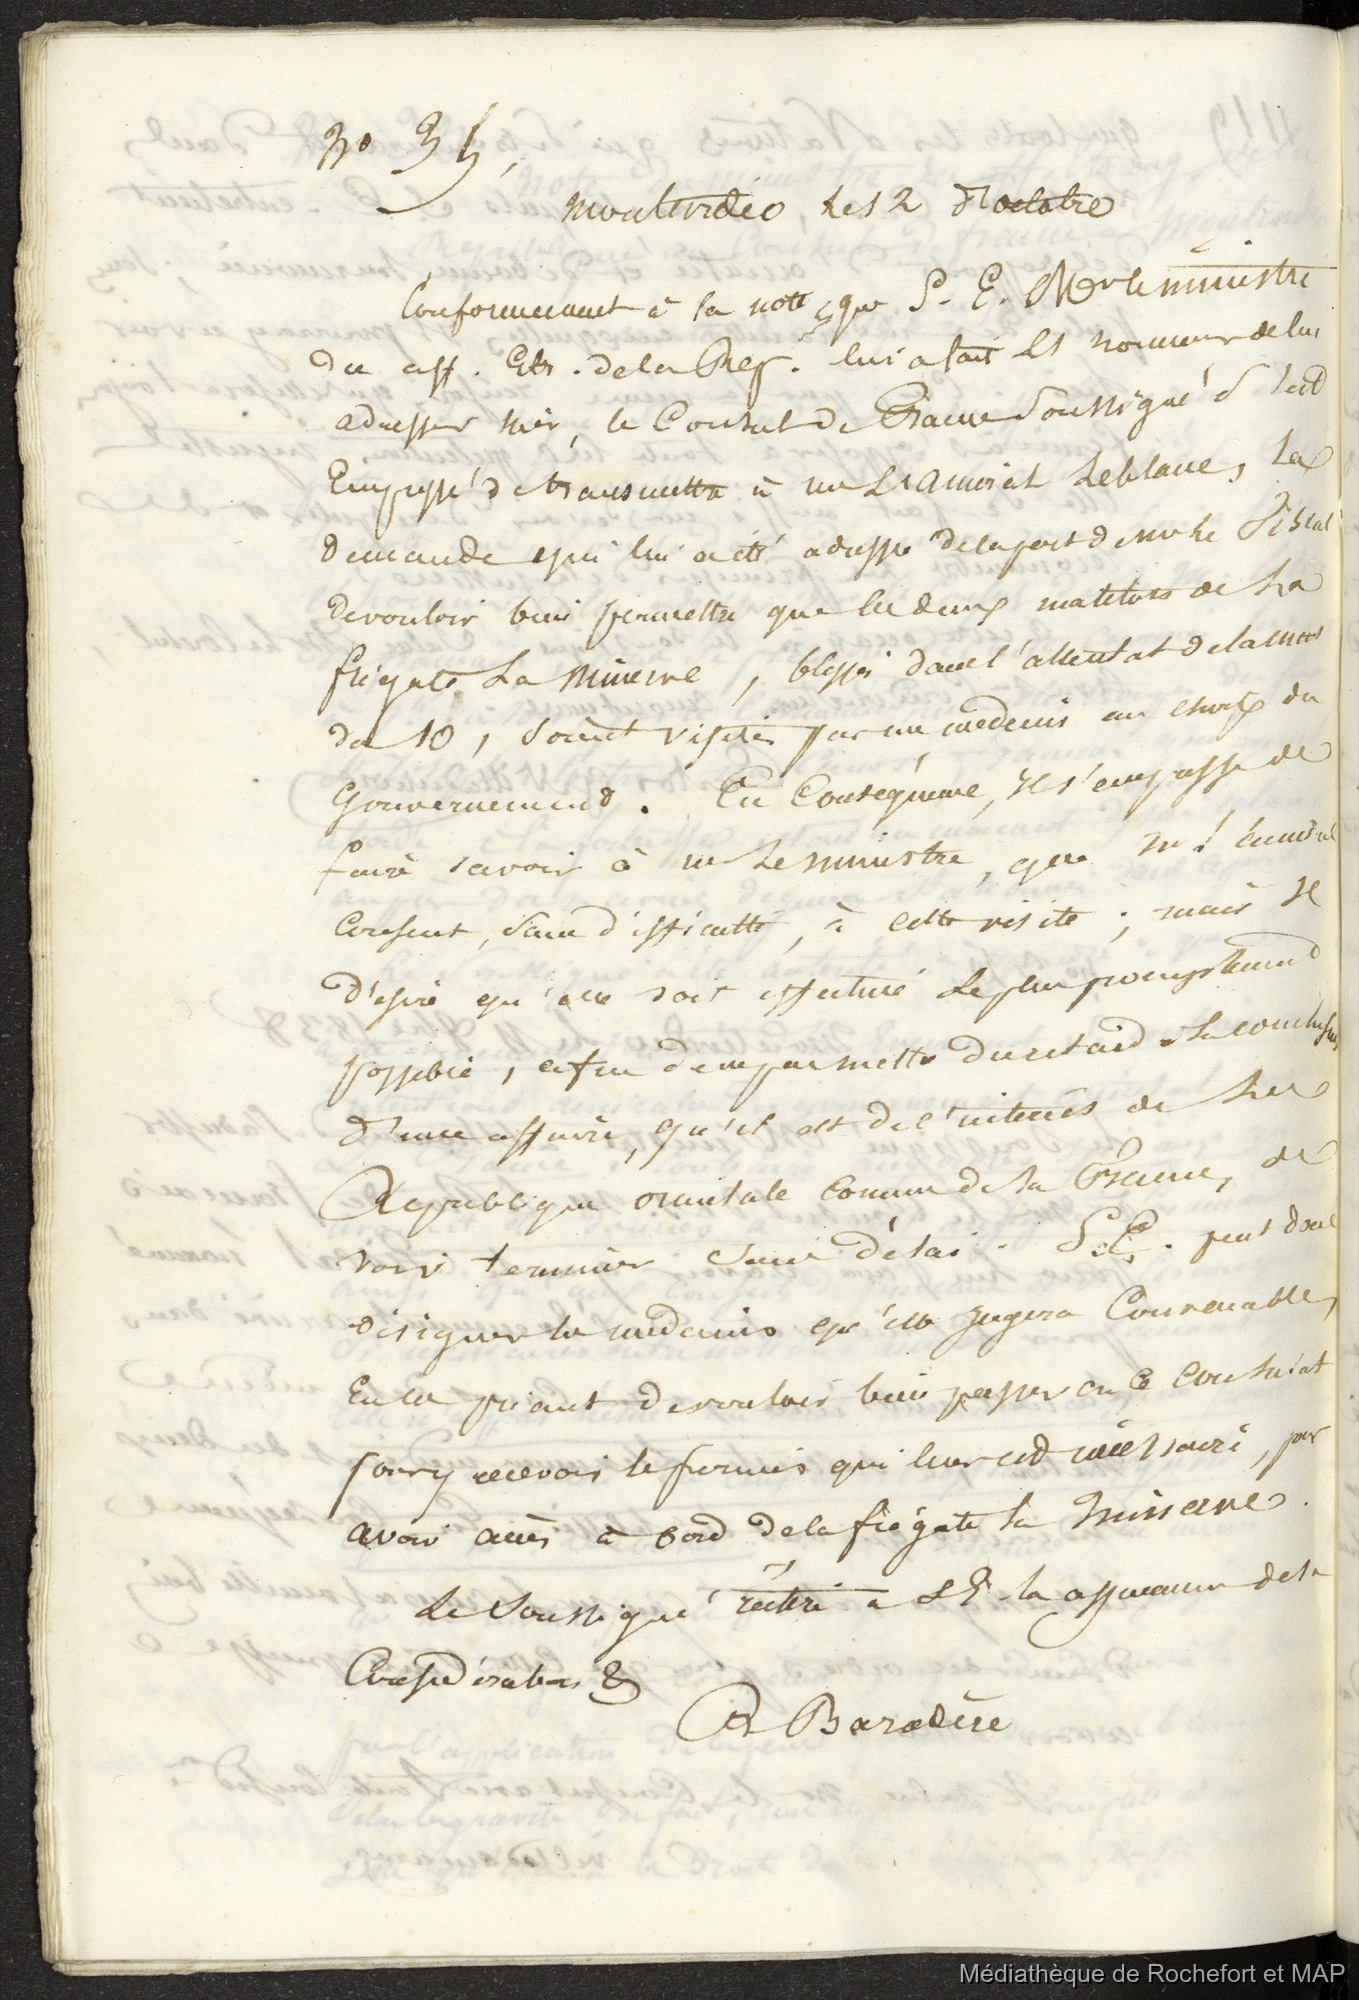 No 34,
Montevideo, le 12 octobre
Conformement à la note que S. E. Mr le ministre
des aff. Etr. de la Rep. lui a fait l'honneur de lui
adresser hier, le Consul de France soussigné s'est
Empressé de transmettre à mr L'amiral Leblanc, la
demande qui lui a été adressée de la part de mr le Fiscal
de vouloir bien permettre que les deux matelots de la
frégate La Minerve, blessés dans l'attentat de la nuit
du 10, soient visités par un médecin au choix du
Gouvernement. En Conséquence, il s'empresse de
faire savoir à mr le ministre, que mr l'amiral
Consent, sans difficulté, à cette visite; mais il
désire qu'elle soit effectuée le plus promptement
possible, afin de ne pas mettre du retard à la conclusion
d'une affaire, qu'il est de l'intérêt de la
République orientale comme de la France, de
voir terminer sans délai. S. E. peut donc
désigner le médecin qu'elle jugera Convenable,
En le priant de vouloir bien passer en ce Consulat
pour y recevoir le permis qui leur est nécessaire, pr
avoir accès à bord de la frégate la Minerve.
Le Soussigné réitère à S E. la assurance de sa
Considération &
R Baradère
Médiathèque de Rochefort et MAP